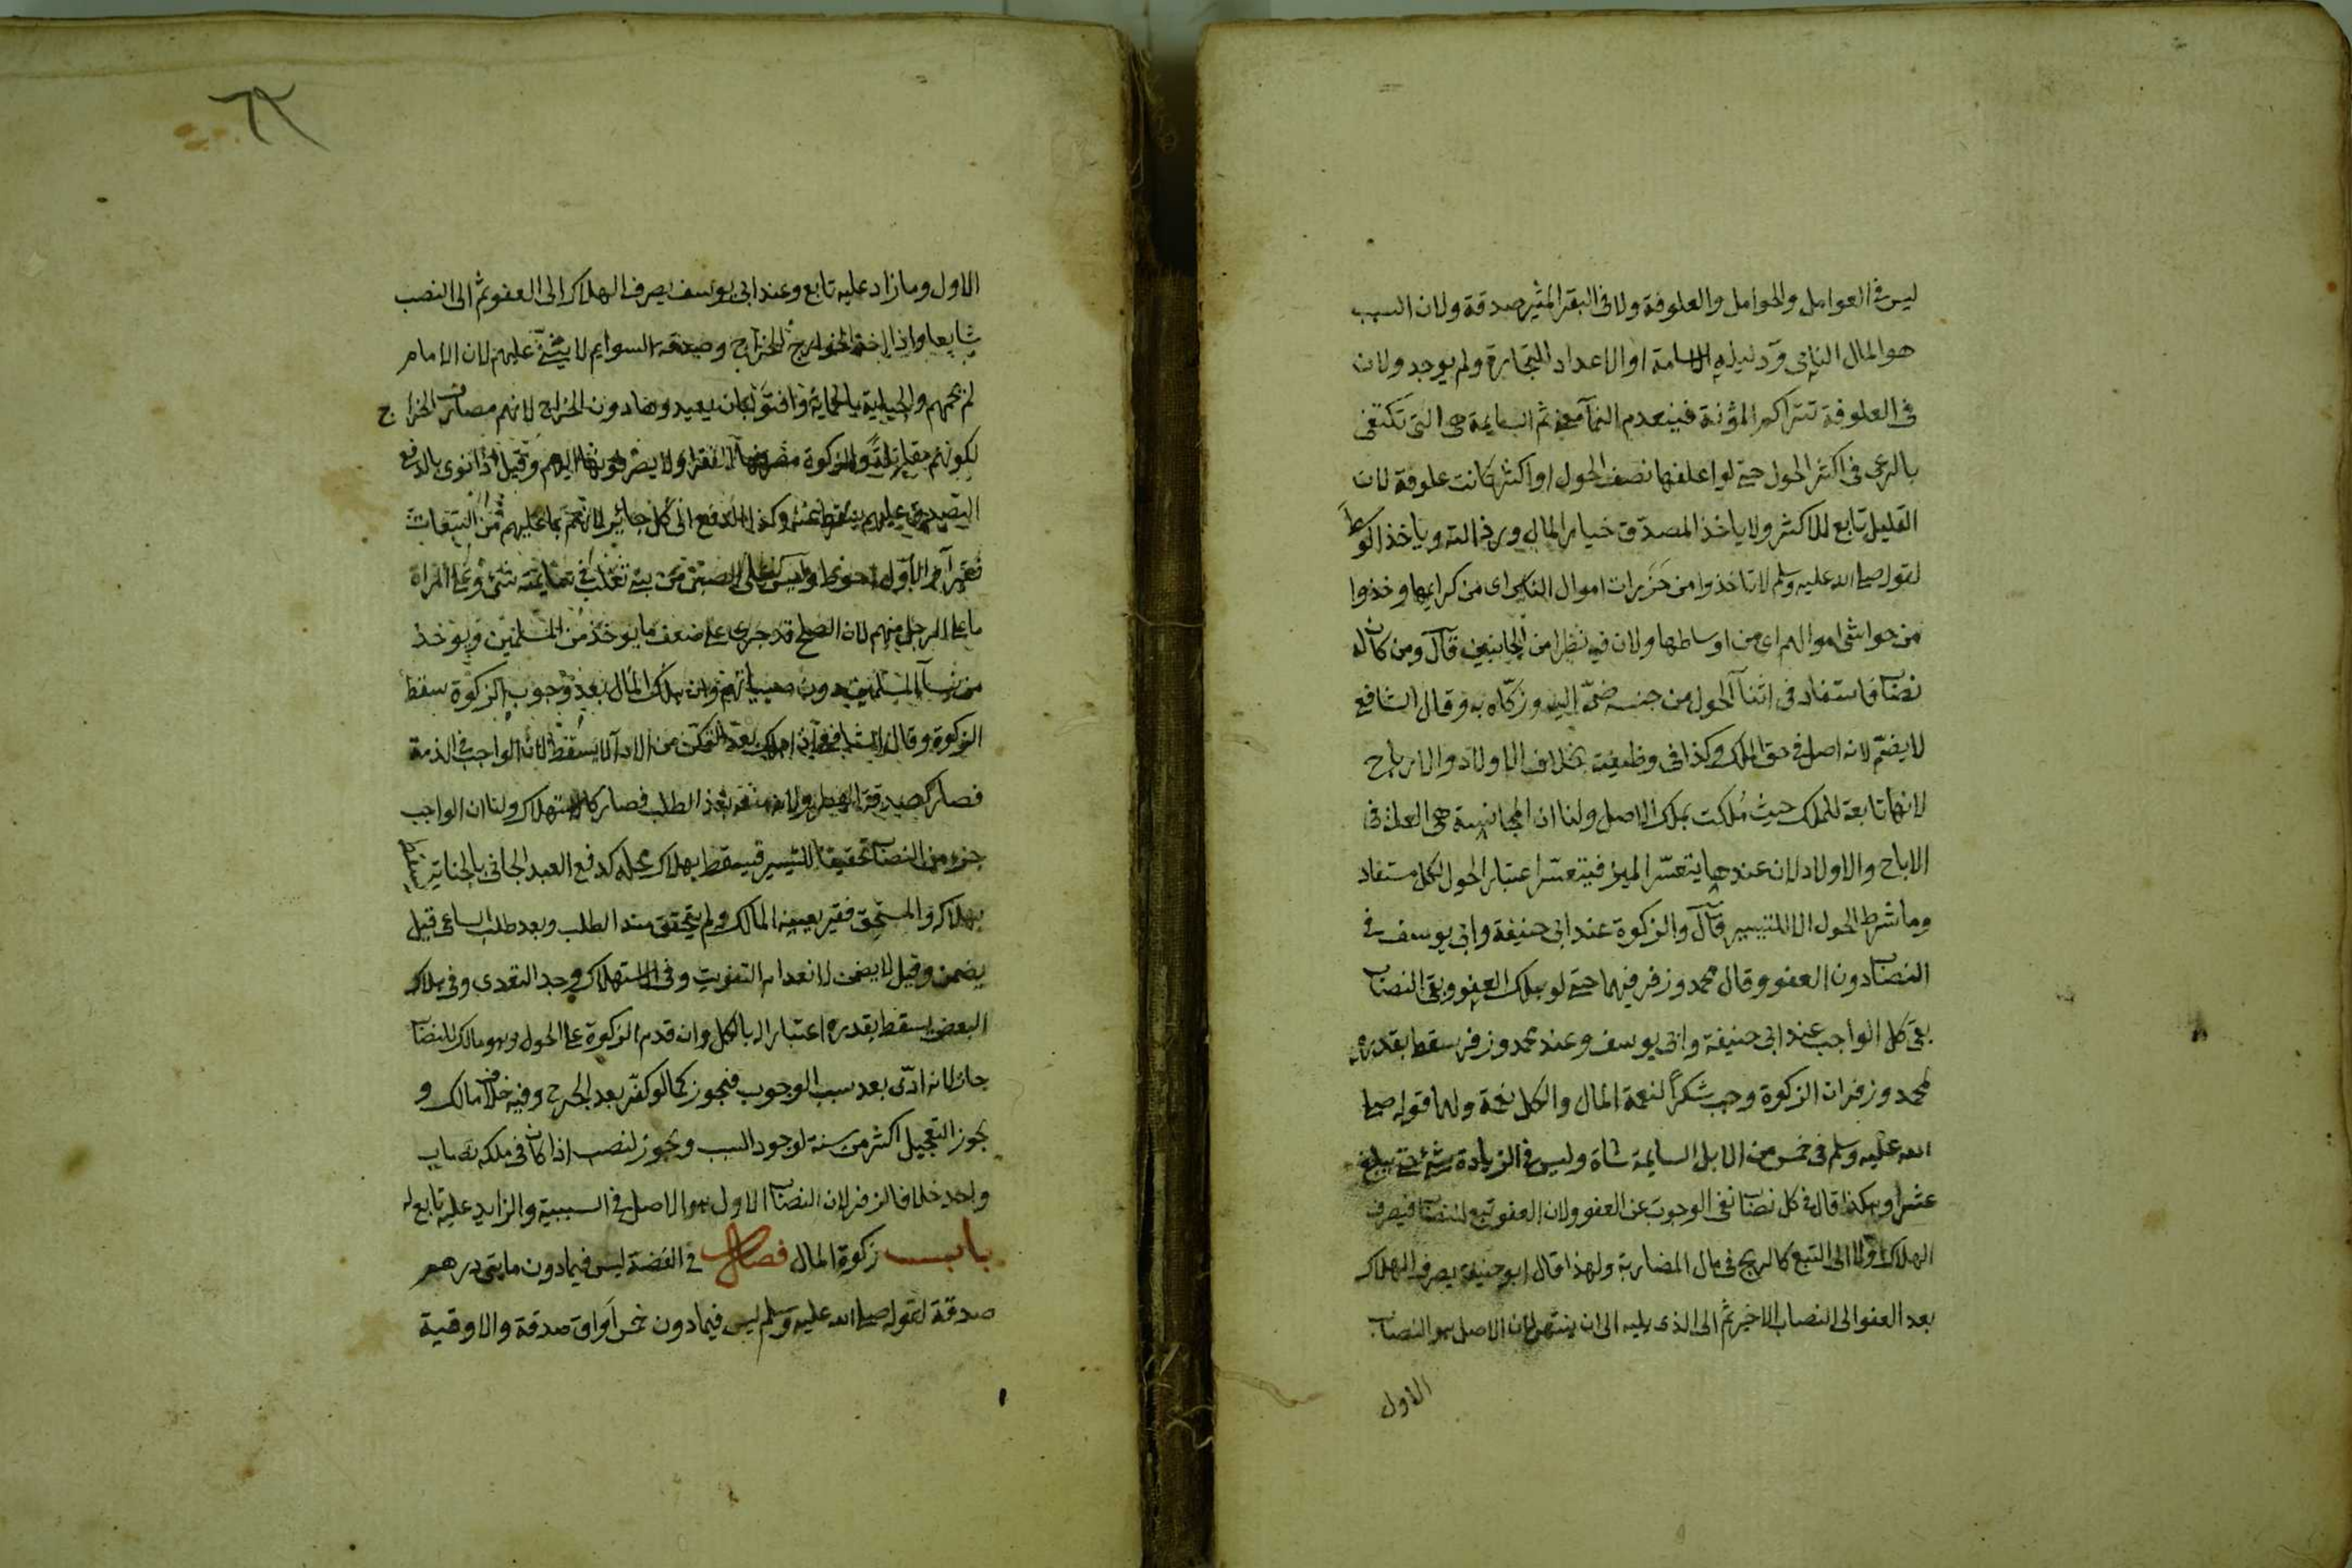 ليس في العوامل والحوامل والعلوفة ولا في البقر المثير صدقة ولان السبب
هو المال النامي ودليله الاسامة او الاعداد للتجارة ولم يوجد ولان
في العلوفة تتراكم المؤنة فينعدم النمآ معنى ثم السايمة هي التي تكتفي
بالرعى في اكثر الحول حتى لو اعلفها نصف الحول او اكثر كانت علوفة لان
القليل تابع للاكثر ولا ياخذ المصدق خيار المال ورذالته وياخذ الوسط
لقوله صلى الله عليه وسلم لا تاخذوا من حزرات اموال الناس اى من كرايمها وخذوا
من حواشى اموالهم اى من اوساطها ولان فيه نظرا من الجانبين قال ومن كان له
نصاب فاستفاد في اثنآ الحول من جنسه ضمه اليه وزكاه به وقال الشافعي
لا يضم لانه اصل في حق الملك وكذا في وظيفته بخلاف الاولاد والارباح
لانها تابعة للملك حيث ملكت بملك الاصل ولنا ان المجانسة هي العلة في
الاباح والاولاد لان عندها يتعسر الميز فيتعسر اعتبار الحول لكل مستفاد
وما شرط الحول الا للتيسير قال والزكوة عند ابي حنيفة وابي يوسف في
النصاب دون العفو وقال محمد وزفر فيهما حتى لو هلك العفو وبقى النصاب
بقى كل الواجب عند ابي حنيفة وابي يوسف وعند محمد وزفر سقط بقدره
لمحمد وزفر ان الزكوة وجب شكرا لنعمة المال والكل نعمة ولهما قوله صلى
الله عليه وسلم في خمس من الابل السايمة شاة وليس في الزيادة شئ حتى يبلغ
عشرا وهكذا قال في كل نصاب نفى الوجوب عن العفو ولان العفو تبع للنصاب فيصرف
الهلاك اولا الى التبع كالربح في مال المضاربة ولهذا قال ابو حنيفة يصرف الهلاك
بعد العفو الى النصاب الاخير ثم الى الذى يليه الى ان ينتهى لان الاصل هو النصاب
الاول
٦٢
الاول وما زاد عليه تابع وعند ابي يوسف يصرف الهلاك الى العفو ثم الى النصب
شايعا واذا اخذ الخوارج الخراج وصدقة السوايم لا يثنى عليهم لان الامام
لم يحمهم والجباية بالحماية وافتوا بان يعيدوها دون الخراج لانهم مصارف الخراج
لكونهم مقاتلة والزكوة مصرفها الفقراء ولا يصرفونها اليهم وقيل اذا نوى بالدفع
التصدق عليهم يسقط عنه وكذا الدفع الى كل جائر لانهم بما عليهم من التبعات
فقرآ والاول احوط وليس على الصبي من بني تغلب في سايمته شئ وعلى المراة
ما على الرجل منهم لان الصلح قد جرى على ضعف ما يوخذ من المسلمين ويوخذ
من نسآ المسلمين دون صبيانهم وان هلك المال بعد وجوب الزكوة سقط
الزكوة وقال الشافعي ان هلك بعد التمكن من الادآ لا يسقط لان الواجب في الذمة
فصار كصدقة الفطر ولانه منعه بعد الطلب فصار كالاستهلاك ولنا ان الواجب
جزء من النصاب تحقيقا للتيسير فيسقط بهلاك محله كدفع العبد الجاني بالجناية يسقط
بهلاكه والمستحق فقير يعينه المالك ولم يتحقق منه الطلب وبعد طلب الساعى قيل
يضمن وقيل لا يضمن لانعدام التفويت وفي الاستهلاك وجد التعدى وفي هلاك
البعض يسقط بقدره اعتبارا بالكل وان قدم الزكوة على الحول وهو مالك للنصاب
جاز لانه ادى بعد سبب الوجوب فيجوز كما لو كفر بعد الجرح وفيه خلاف مالك و
يجوز التعجيل اكثر من سنة لوجود السبب ويجوز لنصب اذا كان في ملكه نصاب
واحد خلافا لزفر لان النصاب الاول هو الاصل في السببية والزايد عليه تابع له
باب زكوة المال فصل في الفضة ليس فيما دون مايتى درهم
صدقة لقوله صلى الله عليه وسلم ليس فيما دون خمس اواق صدقة والاوقية